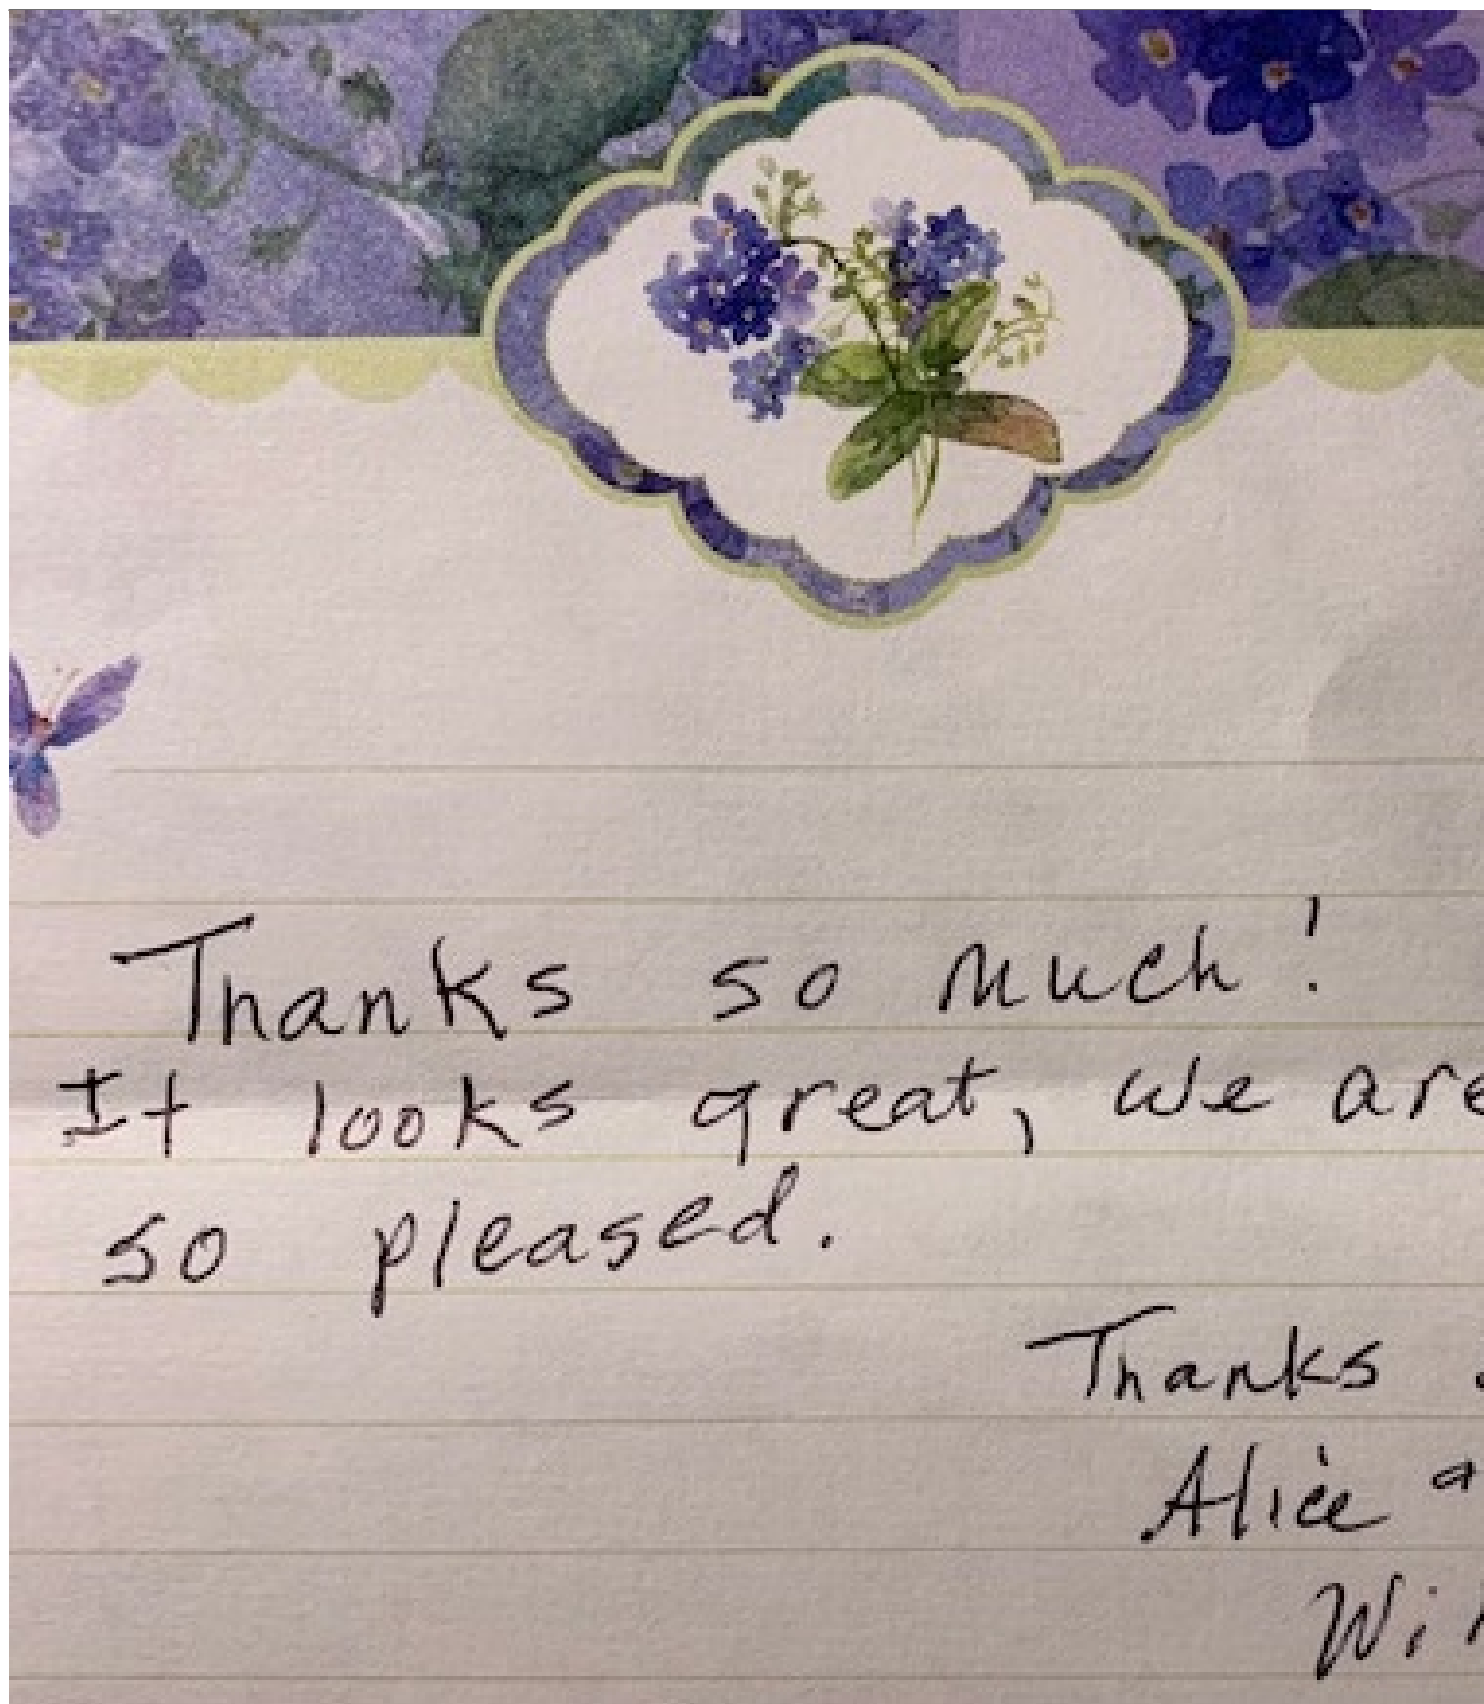 Thanks so much!
It looks great, we are
so pleased.
Thanks
Alice